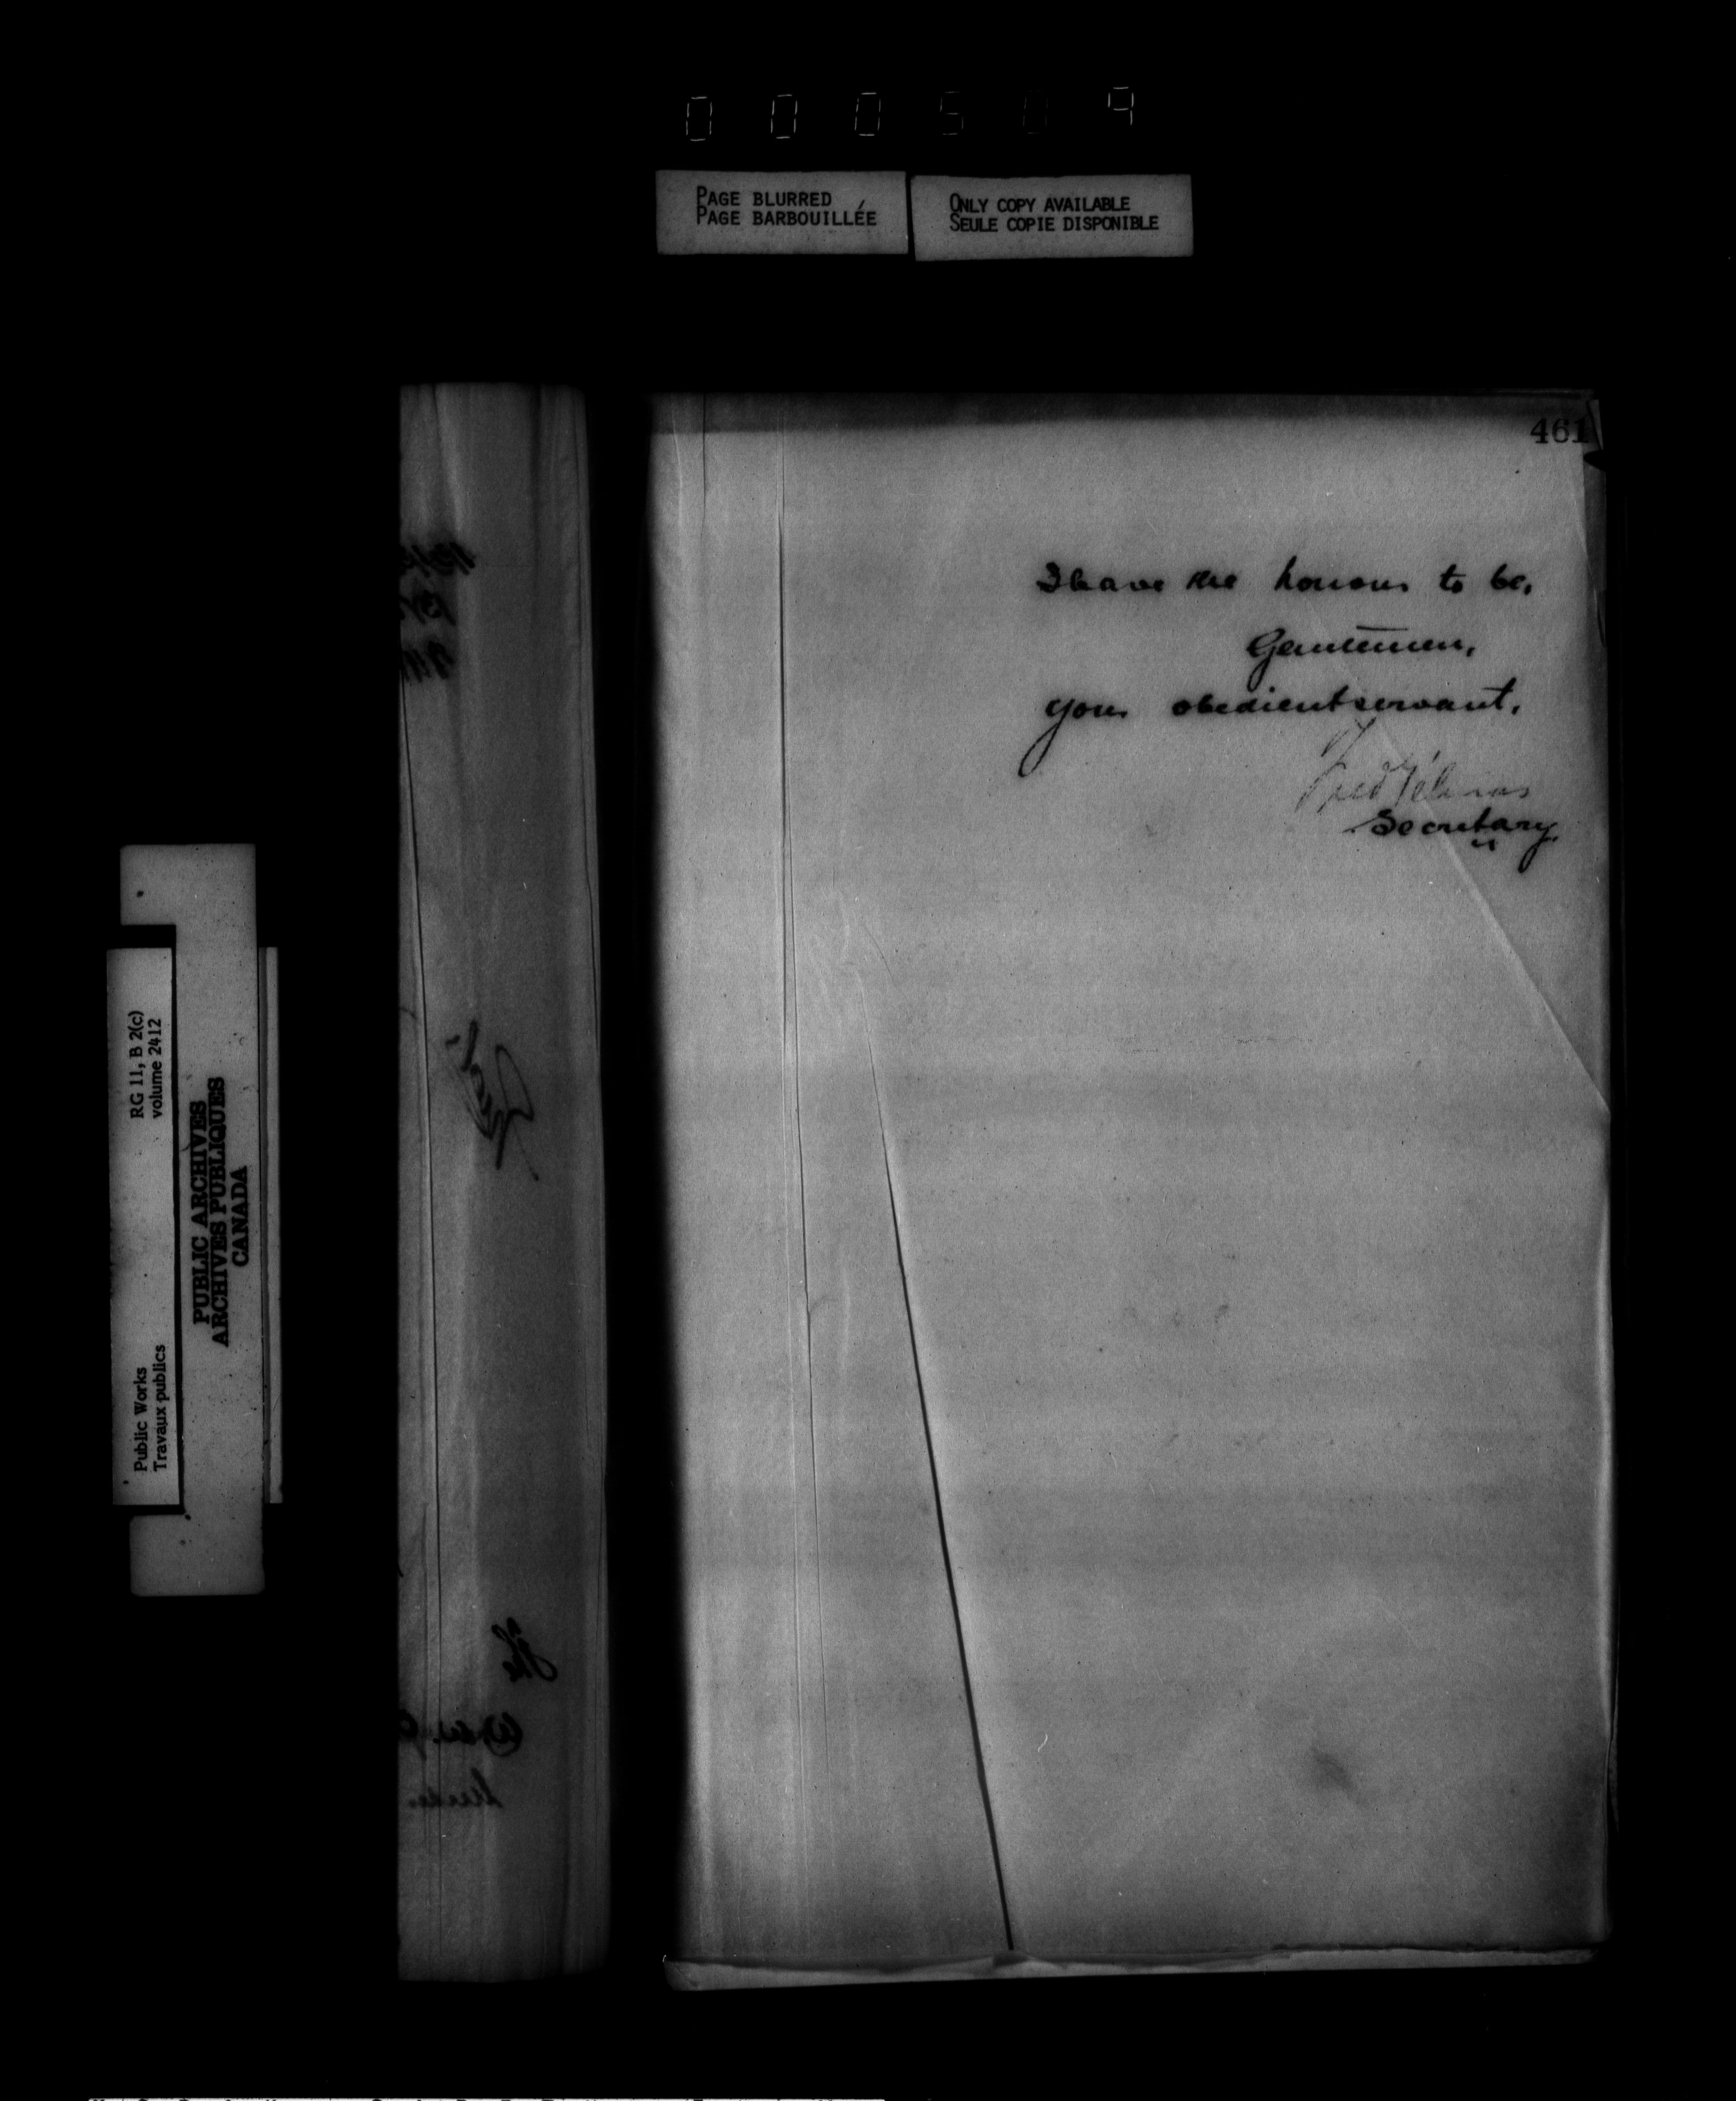 000509
PAGE BLURRED
PAGE BARBOUILLÉE
ONLY COPY AVAILABLE
SEULE COPIE DISPONIBLE
461
I have the honour to be,
Gentlemen,
Your obedient servant,
Fred Gélinas
Secretary
RG 11, B 2(c)
volume 2412
Public Works
Travaux publics
PUBLIC ARCHIVES
ARCHIVES PUBLIQUES
CANADA